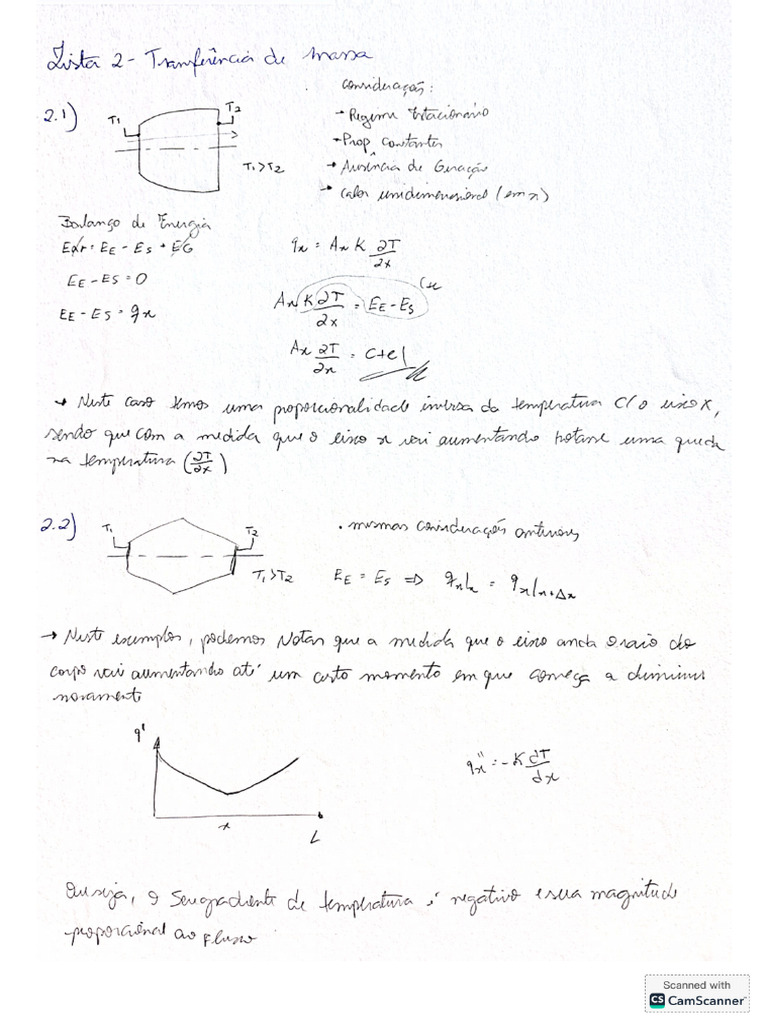 Lista 2 - Transferência de massa
2.1)
T1
T2
T1>T2
Considerações:
- Regime Estacionário
- Prop. constantes
- Ausência de Geração
- Calor unidimensional (em x)
Balanço de Energia
= EE - ES + EG
EE - ES = 0
EE - ES = qx
qx = Ax K ∂T/∂x
Ax K ∂T/∂x = EE - ES
Cte
Ax ∂T/∂x = Cte
→ Neste caso temos uma proporcionalidade inversa da temperatura C/ o eixo X,
sendo que com a medida que o eixo x vai aumentando notase uma queda
na temperatura (∂T/∂x)
2.2)
T1
T2
T1>T2
• mesmas considerações anteriores
EE = ES ⇒ qx|x = qx|x+Δx
→ Neste exemplos, podemos Notar que a medida que o eixo anda o raio do
corpo vai aumentando até um certo momento em que começa a diminuir
novament
q'
x
L
qx" = -K dT/dx
Ou seja, o Seu gradiente de temperatura é negativo e sua magnitude
proporcional ao Fluxo
Scanned with
CS CamScanner